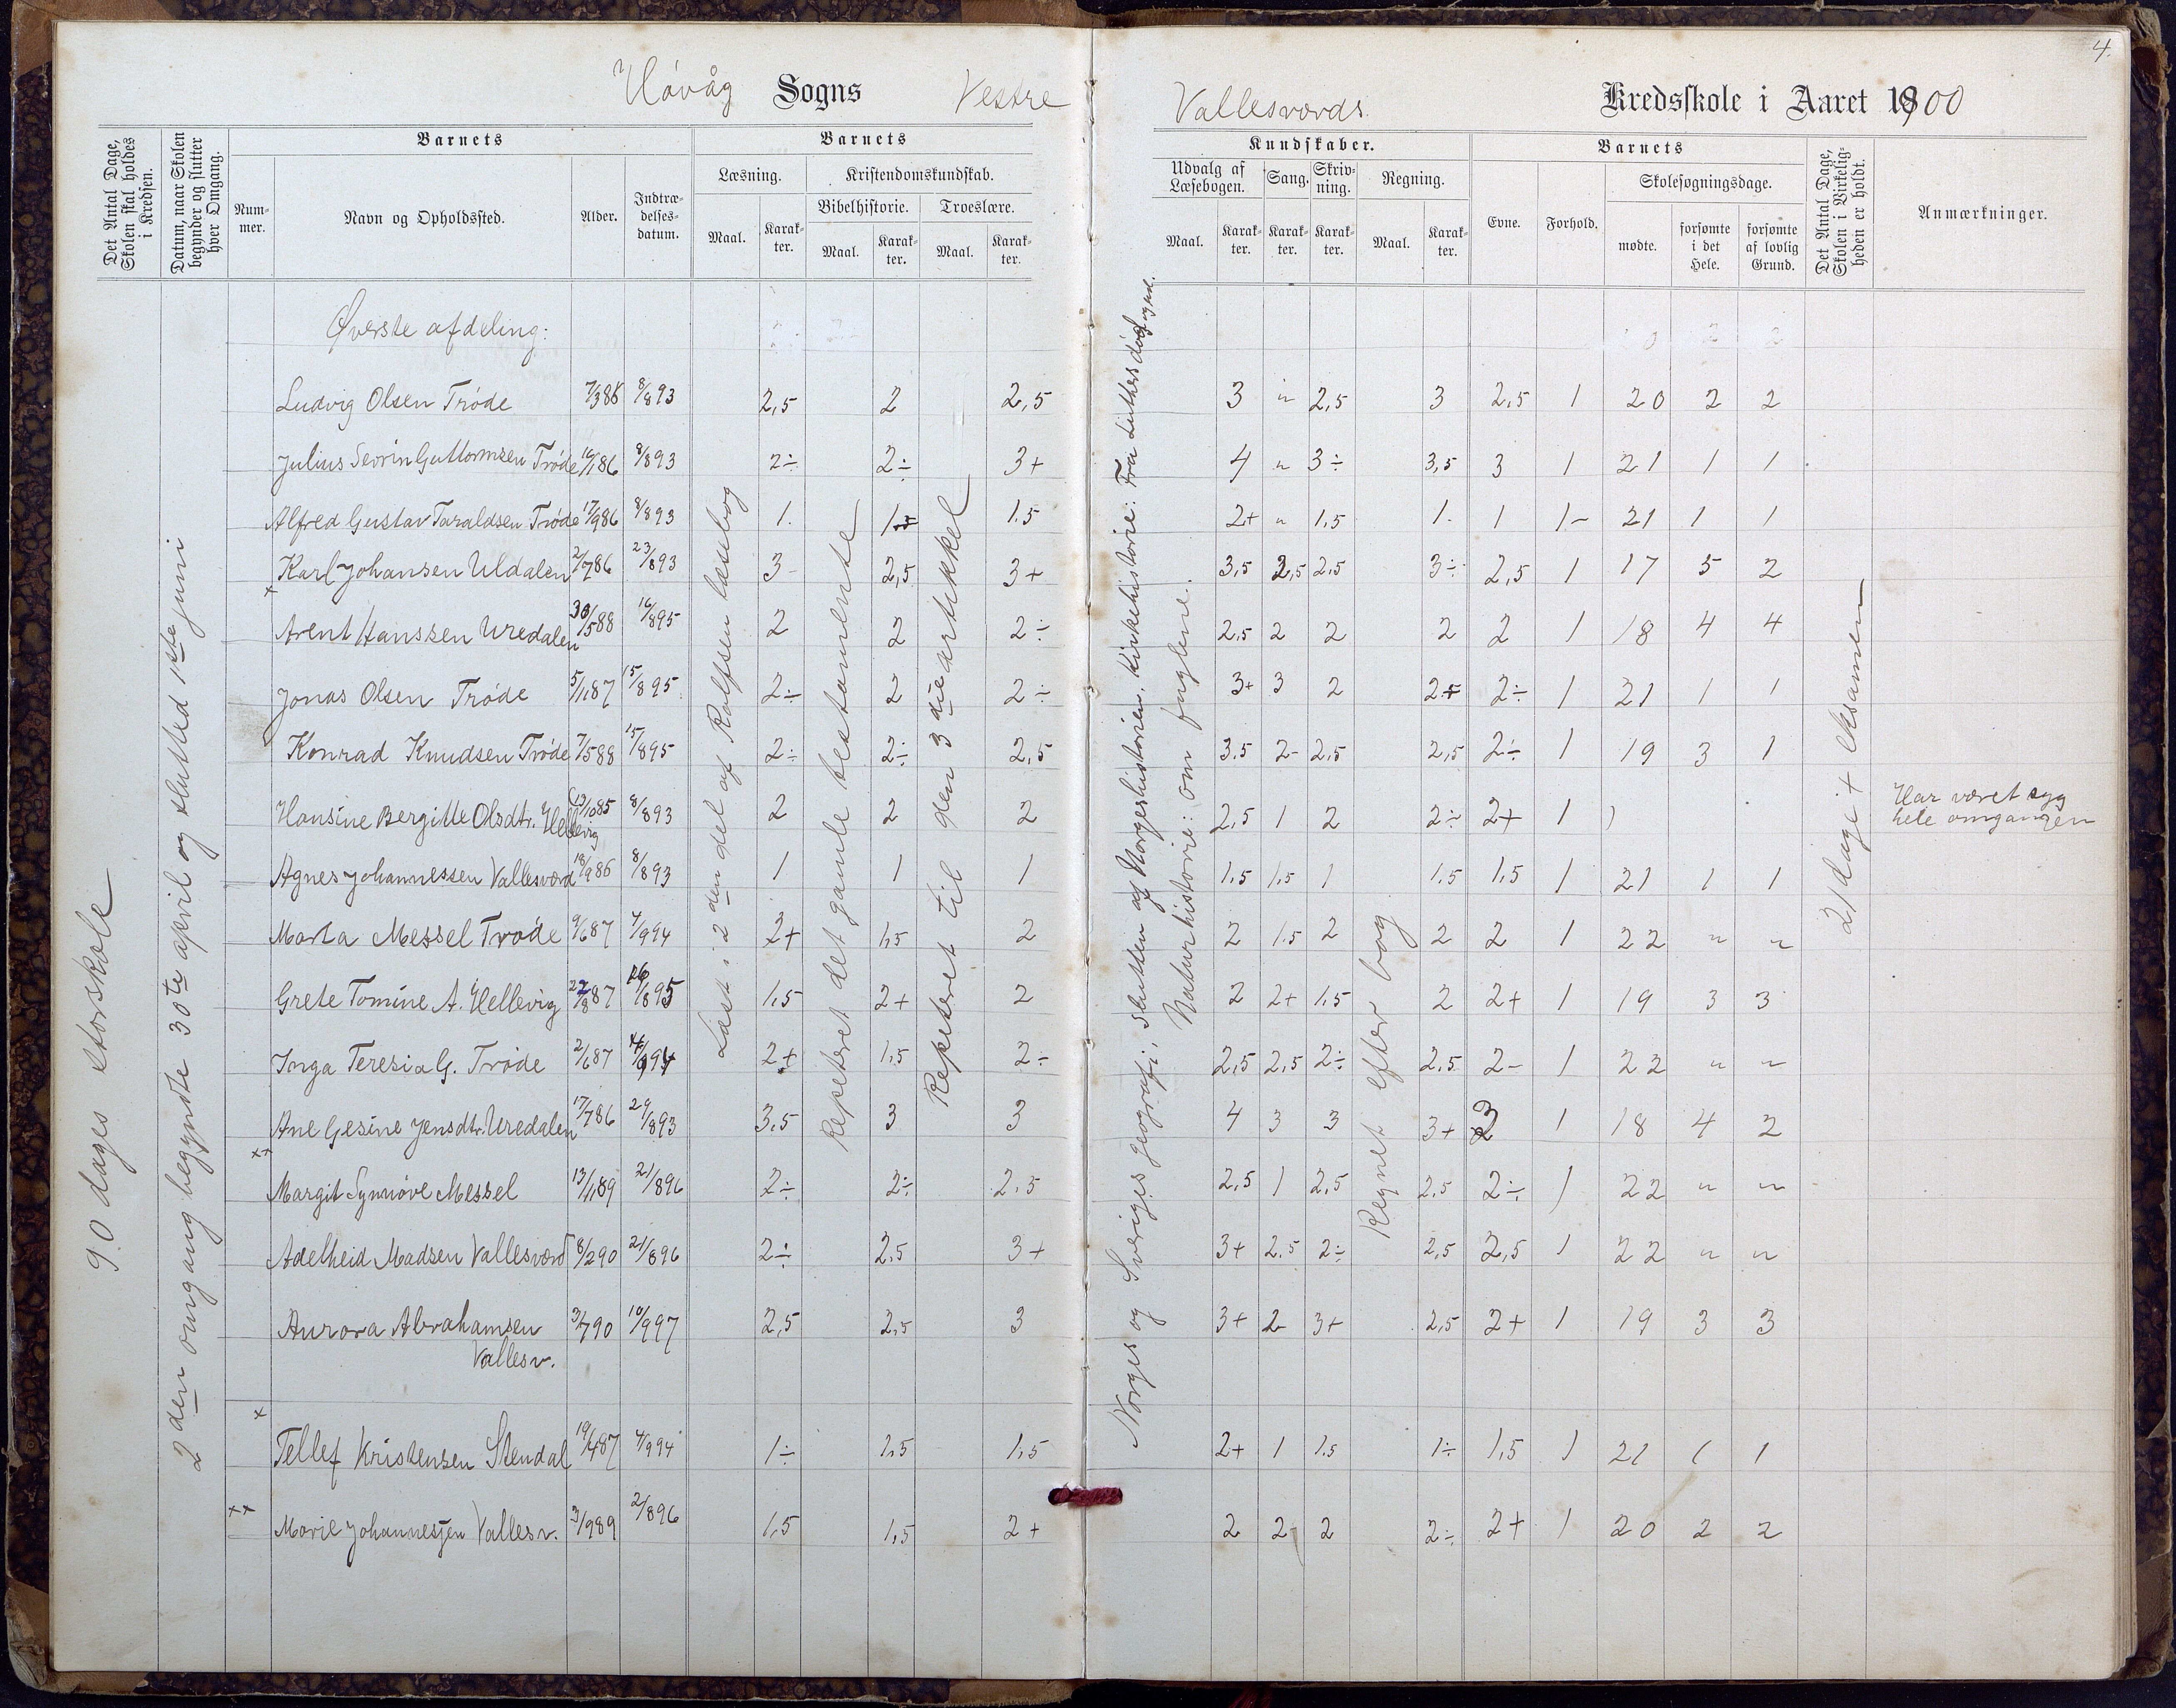 4.
Høvåg Sogns Vestre Vallesværds Kredsskole i Aaret 1900
Det Antal Dage, Skolen skal holdes i Kredsen.
Datum, naar Skolen begynder og slutter hver Omgang.
Barnets
Nummer.
Navn og Opholdssted.
Alder.
Indtrædelsesdatum.
Barnets
Læsning.
Maal.
Karakter.
Kristendomskundskab.
Bibelhistorie.
Maal.
Karakter.
Troeslære.
Maal.
Karakter.
Kundskaber.
Udvalg af Læsebogen.
Maal.
Karakter.
Sang.
Karakter.
Skrivning.
Karakter.
Regning.
Maal.
Karakter.
Barnets
Evne.
Forhold.
Skolesøgningsdage.
mødte.
forsømte i det Hele.
forsømte af lovlig Grund.
Det Antal Dage, Skolen i Virkeligheden er holdt.
Anmærkninger.
90 dages storskole
2den omgang begyndte 30te april og slutted 1ste juni
Læst i 2den del af Rolfsen læsebog
Repeteret det gamle testamente
Repeteret til den 3die artikkel
Norges og Sveriges geografi, slutten af Norgeshistorien, Kirkehistorie: Fra Luthers død og ud.
Naturhistorie: om fuglene.
Regnet efter bog
21 dage + eksamen
Øverste afdeling:
Ludvig Olsen Trøde 7/3 86 8/8 93 2,5 2 2,5 3 " 2,5 3 2,5 1 20 2 2
Julius Sevrin Guttormsen Trøde 16/1 86 8/8 93 2÷ 2÷ 3+ 4 " 3÷ 3,5 3 1 21 1 1
Alfred Gustav Taraldsen Trøde 17/9 86 8/8 93 1. 1,5 1.5 2+ " 1,5 1. 1 1- 21 1 1
Karl Johansen Uldalen 2/7 86 23/8 93 3- 2,5 3+ 3,5 2,5 2,5 3÷ 2,5 1 17 5 2
x
Arent Hanssen Uredalen 30/5 88 16/8 95 2 2 2÷ 2,5 2 2 2 2 1 18 4 4
Jonas Olsen Trøde 5/1 87 15/8 95 2÷ 2 2÷ 3+ 3 2 2+ 2÷ 1 21 1 1
Konrad Knudsen Trøde 7/5 88 15/8 95 2÷ 2÷ 2,5 3,5 2- 2,5 2,5 2÷ 1 19 3 1
Hansine Bergitte Olsdtr. Hellevig 13/10 85 8/8 93 2 2 2 2,5 1 2 2÷ 2+ 1 ) Har været syg hele omgangen
Agnes Johannessen Vallesværd 18/9 86 8/8 93 1 1 1 1,5 1,5 1 1,5 1,5 1 21 1 1
Marta Messel Trøde 9/6 87 4/9 94 2+ 1,5 2 2 1.5 2 2 2 1 22 " "
Grete Tomine A. Hellevig 22/8 87 16/8 95 1,5 2+ 2 2 2+ 1,5 2 2+ 1 19 3 3
Inga Teresia G. Trøde 2/6 87 4/9 94 2+ 1,5 2÷ 2,5 2,5 2÷ 2,5 2- 1 22 " "
Ane Gesine Jensdtr. Uredalen 17/7 86 29/8 93 3,5 3 3 4 3 3 3+ 3 1 18 4 2
xx
Margit Synnøve Messel 13/1 89 21/8 96 2÷ 2÷ 2,5 2,5 1 2,5 2,5 2÷ 1 22 " "
Adelheid Madsen Vallesværd 8/2 90 21/8 96 2÷ 2,5 3+ 3+ 2,5 2÷ 2,5 2,5 1 22 " "
Aurora Abrahamsen Vallesv. 3/7 90 10/9 97 2,5 2,5 3 3+ 2 3+ 2,5 2+ 1 19 3 3
x
Tellef Kristensen Stendal 19/4 87 4/9 94 1÷ 1,5 1,5 2+ 1 1.5 1÷ 1,5 1 21 1 1
xx
Marie Johannessen Vallesv. 3/9 89 2/8 96 1,5 1,5 2+ 2 2- 2 2÷ 2+ 1 20 2 2